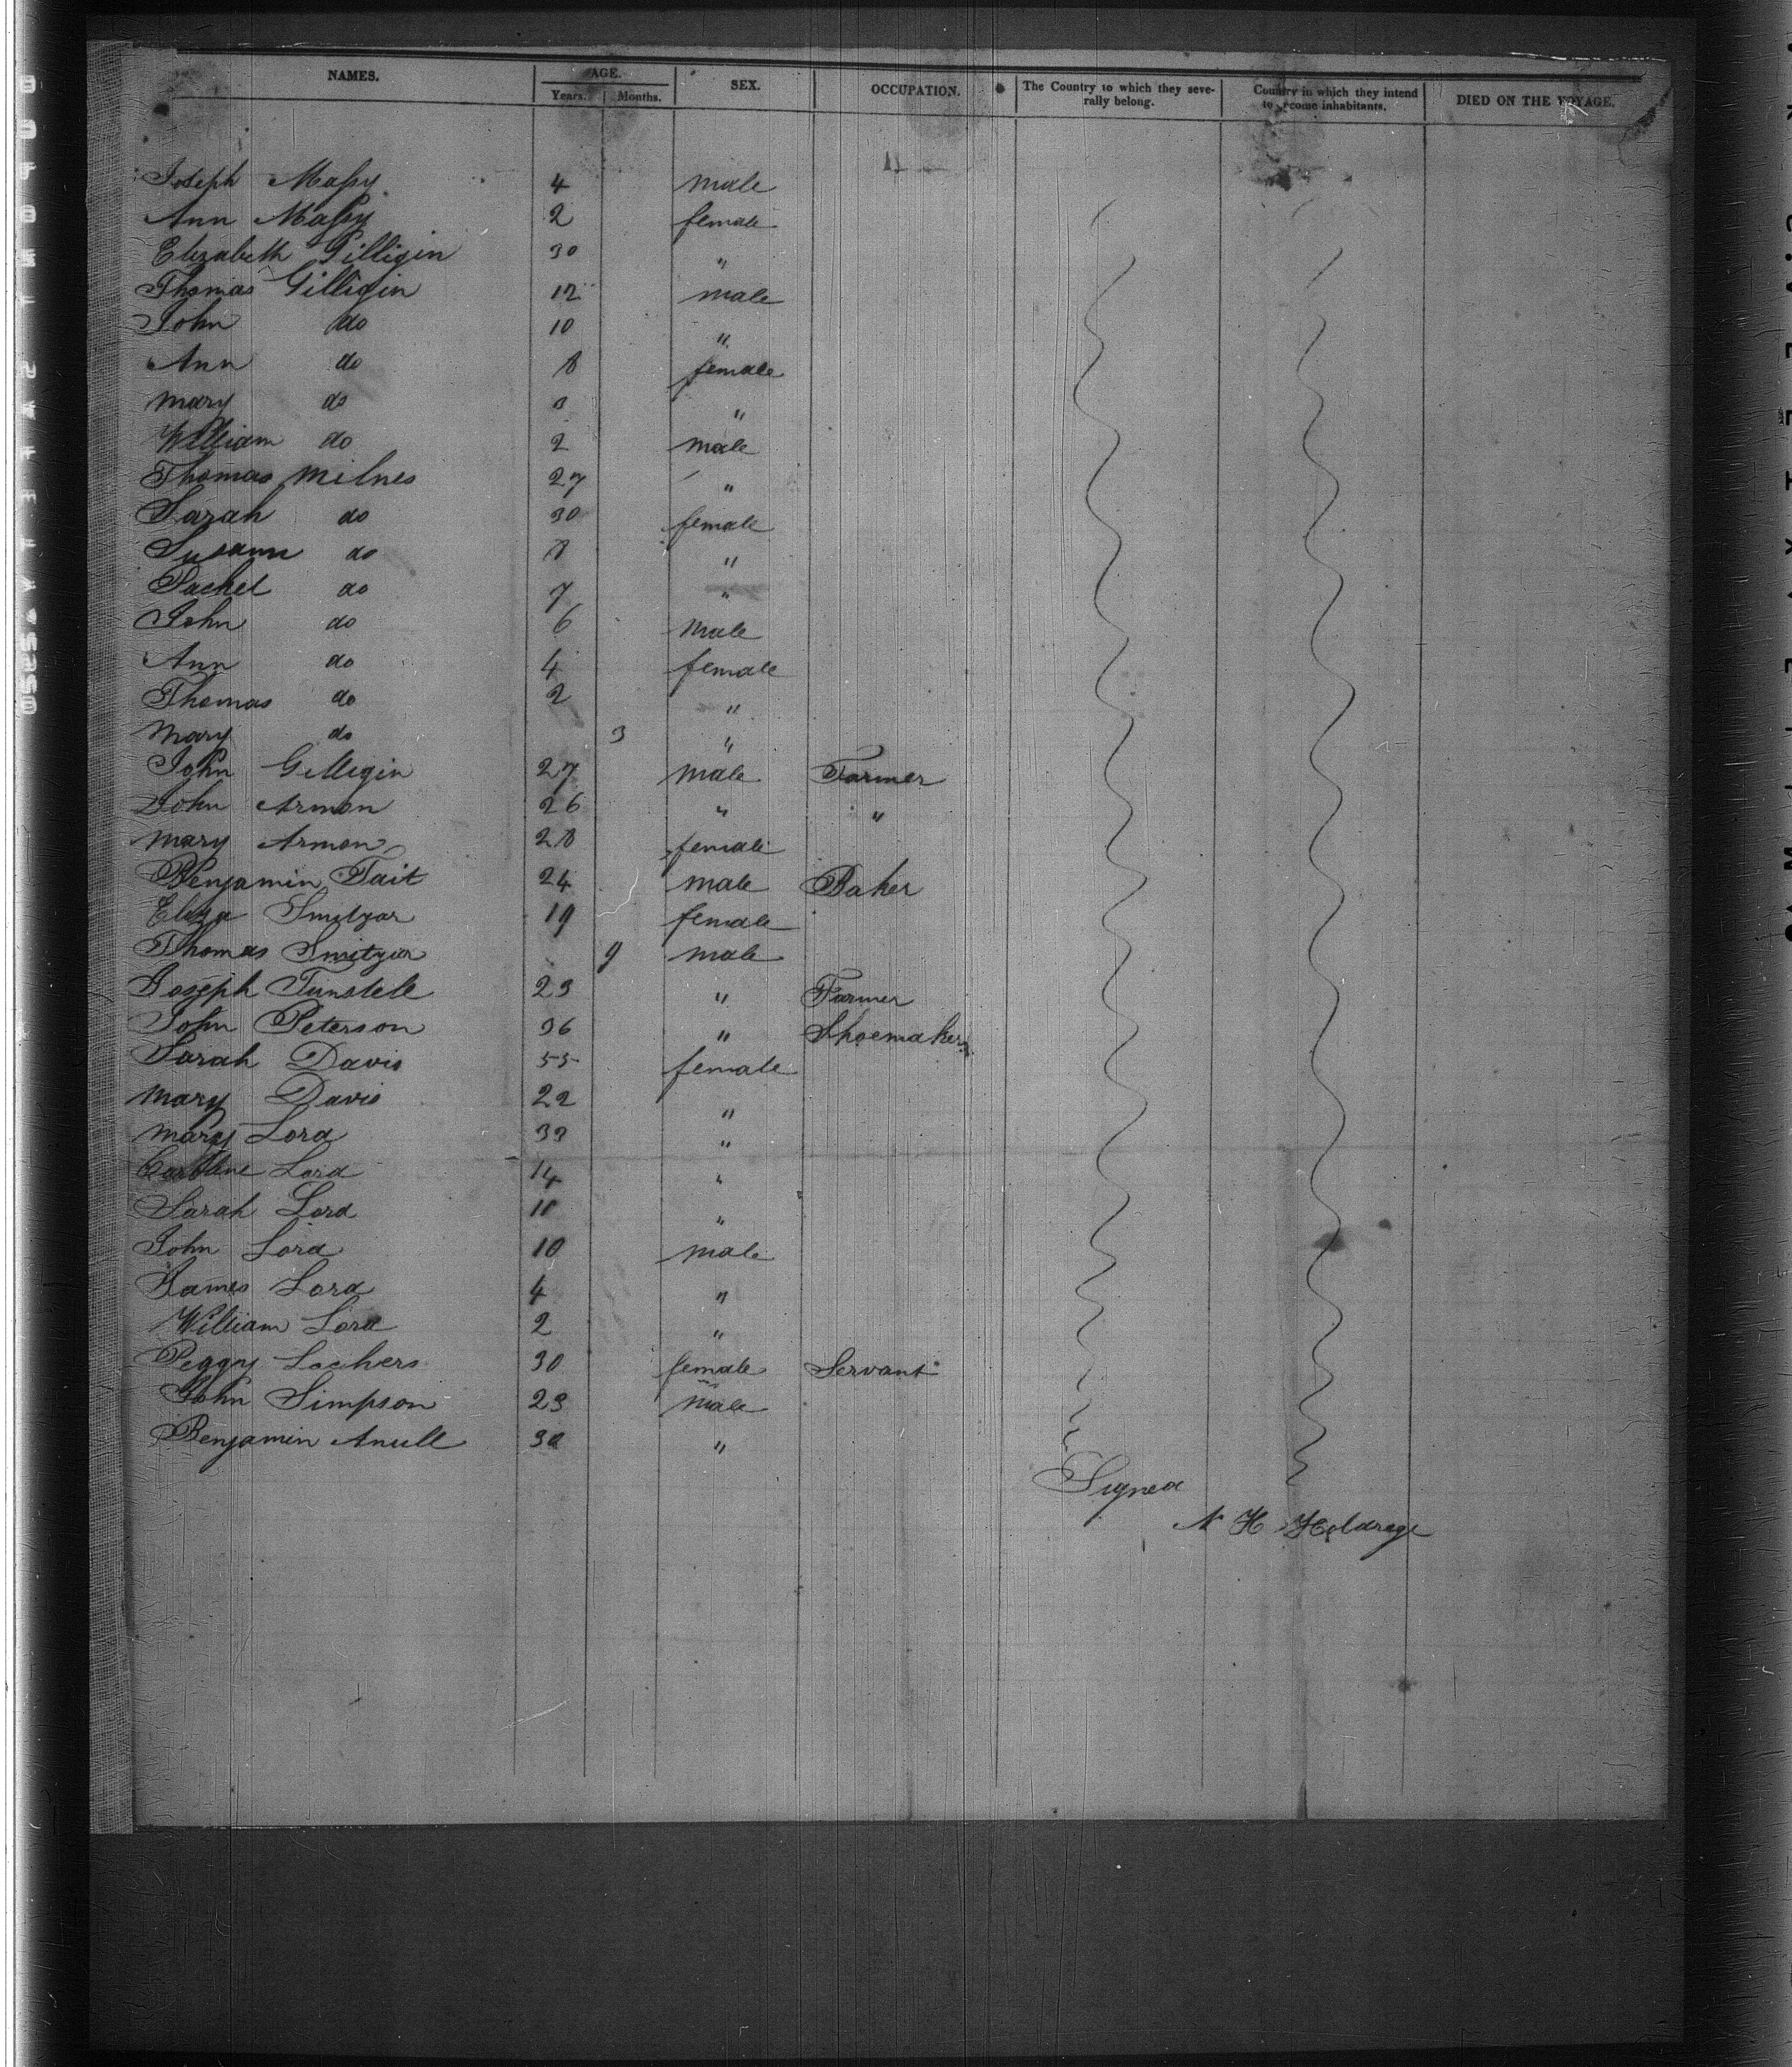 NAMES. AGE. SEX. OCCUPATION. The Country to which they seve- Country in which they intend DIED ON THE VOYAGE.
Years. Months. rally belong. to become inhabitants.
Joseph Massy 4 male
Ann Massy 2 female
Elizabeth Gilligin 30 "
Thomas Gilligin 12 male
John do 10 "
Ann do 8 female
Mary do 3 "
William do 2 male
Thomas Milnes 27 "
Sarah do 30 female
Susann do 8 "
Rachel do 7 "
John do 6 male
Ann do 4 female
Thomas do 2 "
Mary do 3 "
John Gilligin 27 male Farmer
John Armon 26 " "
Mary Armon 28 female
Benjamin Tait 24 male Baker
Eliza Smitzar 19 female
Thomas Smitzar 9 male
Joseph Tunstele 23 " Farmer
John Peterson 36 " Shoemaker
Sarah Davis 55 female
Mary Davis 22 "
Mary Lord 33 "
Caroline Lord 14 "
Sarah Lord "
John Lord 10 male
James Lord 4 "
William Lord 2 "
Peggy Lockers 30 female Servant
John Simpson 23 male
Benjamin Anull 30 "
Signed
N H Holdrege